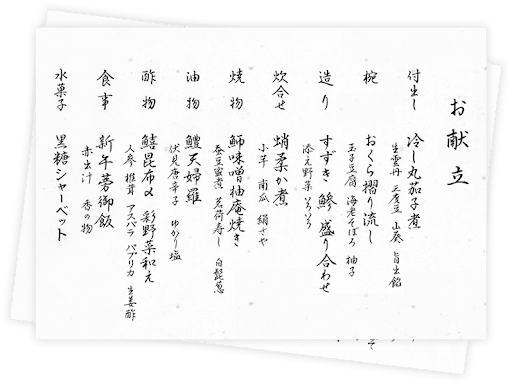 お献立
付出し 冷し丸茄子煮
生雲丹 三度豆 山葵 旨出餡
椀 おくら摺り流し
玉子豆腐 海老そぼろ 柚子
造り すずき 鯵 盛り合わせ
添え野菜いろいろ
炊合せ 蛸柔か煮
小芋 南瓜 絹さや
焼物 鰤味噌柚庵焼き
蚕豆蜜煮 茗荷寿し 白髭葱
油物 鱧天婦羅
伏見唐辛子 ゆかり塩
酢物 鱚昆布〆 彩野菜和え
人参 椎茸 アスパラ パプリカ 生姜酢
食事 新牛蒡御飯
赤出汁 香の物
水菓子 黒糖シャーベット